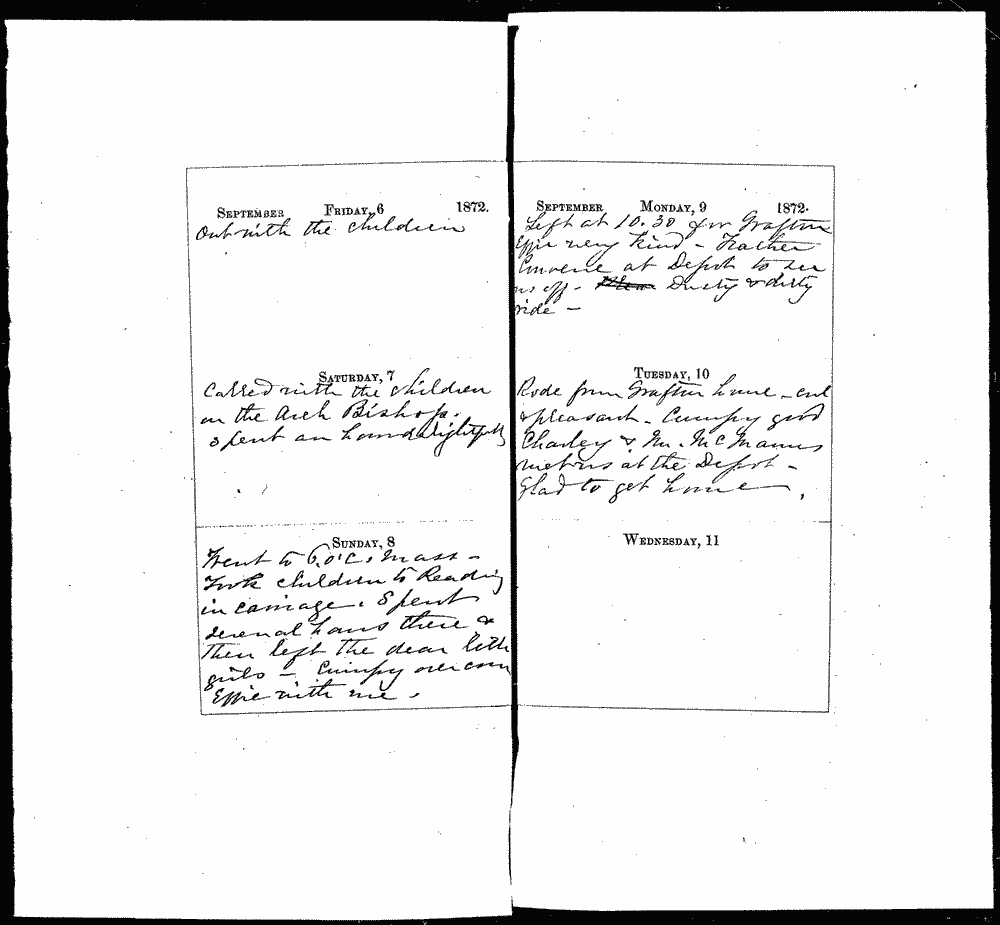 SEPTEMBER FRIDAY, 6 1872.
Out with the children
SATURDAY, 7
Called with the children
on the Arch Bishop.
Spent an hour delightfully
SUNDAY, 8
Went to 6.o'c. Mass –
Took children to Reading
in carriage. Spent
several hours there &
then left the dear little
girls – Cumpy overcom
Effie with me.
SEPTEMBER MONDAY, 9 1872.
Left at 10.30 for Grafton
Effie very kind – Father
at Depot to see
us off – Dusty & dirty
ride –
TUESDAY, 10
Rode from Grafton home – cool
& pleasant – Cumpy good
Charley & Mr. McManus
met us at the Depot –
Glad to get home.
WEDNESDAY, 11